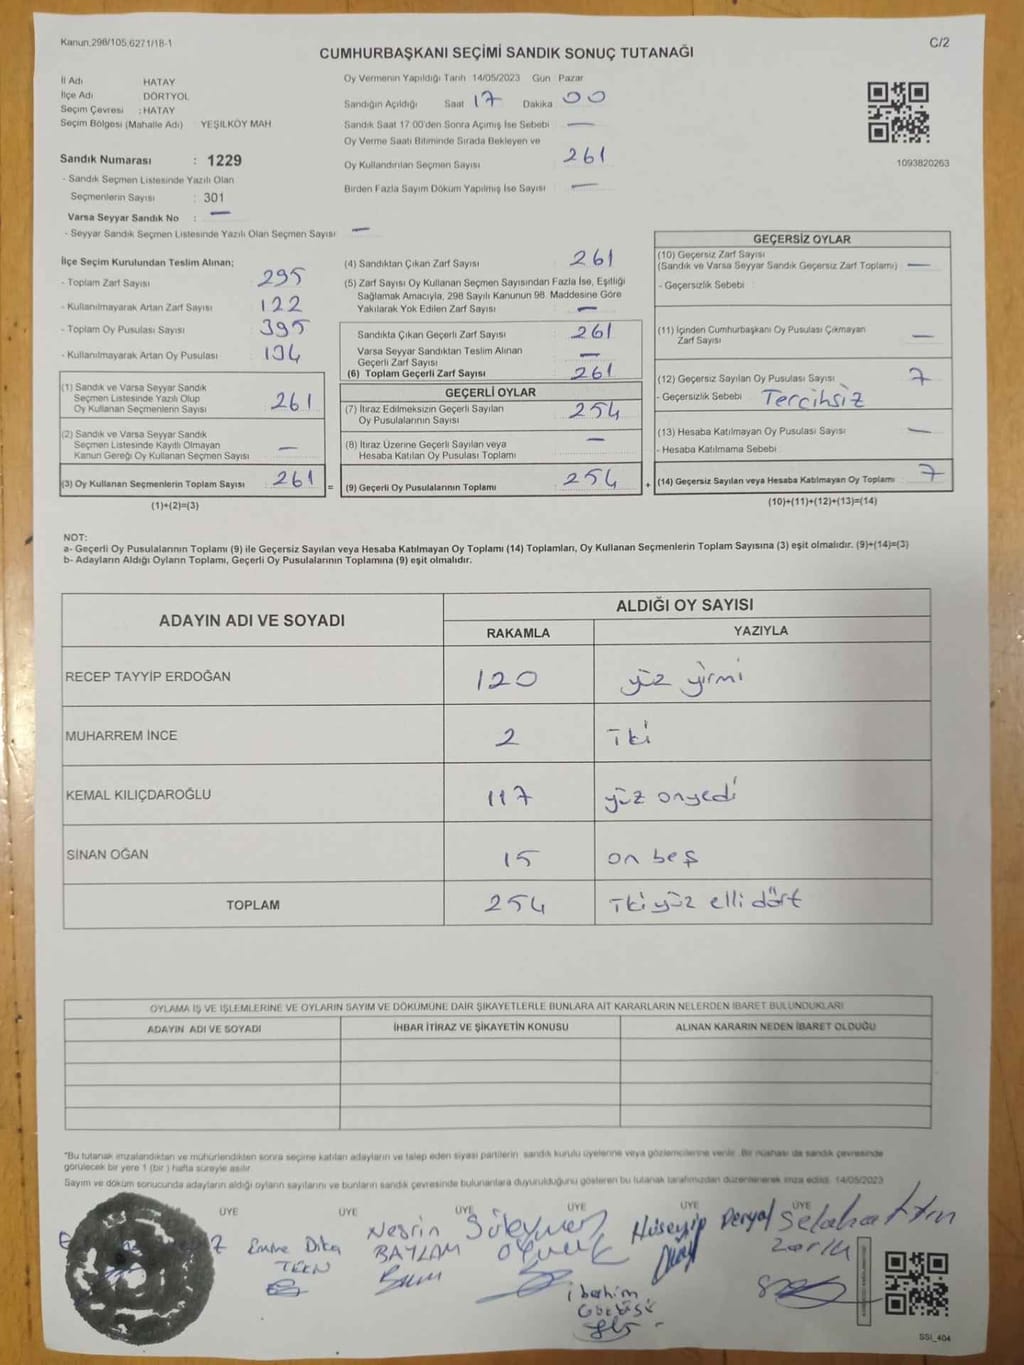 Kanun.298/105,6271/18-1
C/2
CUMHURBAŞKANI SEÇİMİ SANDIK SONUÇ TUTANAĞI
İl Adı HATAY
İlçe Adı DÖRTYOL
Seçim Çevresi : HATAY
Seçim Bölgesi (Mahalle Adı) YEŞİLKÖY MAH
Oy Vermenin Yapıldığı Tarih 14/05/2023 Gün Pazar
Sandığın Açıldığı Saat 17 Dakika 00
Sandık Saat 17.00'den Sonra Açımış İse Sebebi —
Oy Verme Saati Bitiminde Sırada Bekleyen ve
Oy Kullandırılan Seçmen Sayısı 261
Birden Fazla Sayım Döküm Yapılmış İse Sayısı —
1093820263
Sandık Numarası : 1229
- Sandık Seçmen Listesinde Yazılı Olan
Seçmenlerin Sayısı : 301
Varsa Seyyar Sandık No : —
- Seyyar Sandık Seçmen Listesinde Yazılı Olan Seçmen Sayısı —
İlçe Seçim Kurulundan Teslim Alınan;
- Toplam Zarf Sayısı 295
- Kullanılmayarak Artan Zarf Sayısı 122
- Toplam Oy Pusulası Sayısı 395
- Kullanılmayarak Artan Oy Pusulası 134
(1) Sandık ve Varsa Seyyar Sandık
Seçmen Listesinde Yazılı Olup
Oy Kullanan Seçmenlerin Sayısı 261
(2) Sandık ve Varsa Seyyar Sandık
Seçmen Listesinde Kayıtlı Olmayan
Kanun Gereği Oy Kullanan Seçmen Sayısı —
(3) Oy Kullanan Seçmenlerin Toplam Sayısı 261 =
(1)+(2)=(3)
(4) Sandıktan Çıkan Zarf Sayısı 261
(5) Zarf Sayısı Oy Kullanan Seçmen Sayısından Fazla İse, Eşitliği
Sağlamak Amacıyla, 298 Sayılı Kanunun 98. Maddesine Göre
Yakılarak Yok Edilen Zarf Sayısı —
Sandıkta Çıkan Geçerli Zarf Sayısı 261
Varsa Seyyar Sandıktan Teslim Alınan
Geçerli Zarf Sayısı —
(6) Toplam Geçerli Zarf Sayısı 261
GEÇERLİ OYLAR
(7) İtiraz Edilmeksizin Geçerli Sayılan
Oy Pusulalarının Sayısı 254
(8) İtiraz Üzerine Geçerli Sayılan veya
Hesaba Katılan Oy Pusulası Toplamı —
(9) Geçerli Oy Pusulalarının Toplamı 254 +
GEÇERSİZ OYLAR
(10) Geçersiz Zarf Sayısı
(Sandık ve Varsa Seyyar Sandık Geçersiz Zarf Toplamı) —
- Geçersizlik Sebebi
(11) İçinden Cumhurbaşkanı Oy Pusulası Çıkmayan
Zarf Sayısı —
(12) Geçersiz Sayılan Oy Pusulası Sayısı 7
- Geçersizlik Sebebi Tercihsiz
(13) Hesaba Katılmayan Oy Pusulası Sayısı —
- Hesaba Katılmama Sebebi
(14) Geçersiz Sayılan veya Hesaba Katılmayan Oy Toplamı 7
(10)+(11)+(12)+(13)=(14)
NOT:
a- Geçerli Oy Pusulalarının Toplamı (9) ile Geçersiz Sayılan veya Hesaba Katılmayan Oy Toplamı (14) Toplamları, Oy Kullanan Seçmenlerin Toplam Sayısına (3) eşit olmalıdır. (9)+(14)=(3)
b- Adayların Aldığı Oyların Toplamı, Geçerli Oy Pusulalarının Toplamına (9) eşit olmalıdır.
ADAYIN ADI VE SOYADI
ALDIĞI OY SAYISI
RAKAMLA YAZIYLA
RECEP TAYYİP ERDOĞAN 120 yüz yirmi
MUHARREM İNCE 2 iki
KEMAL KILIÇDAROĞLU 117 yüz onyedi
SİNAN OĞAN 15 on beş
TOPLAM 254 ikiyüz elli dört
OYLAMA İŞ VE İŞLEMLERİNE VE OYLARIN SAYIM VE DÖKÜMÜNE DAİR ŞİKAYETLERLE BUNLARA AİT KARARLARIN NELERDEN İBARET BULUNDUKLARI
ADAYIN ADI VE SOYADI İHBAR İTİRAZ VE ŞİKAYETİN KONUSU ALINAN KARARIN NEDEN İBARET OLDUĞU
"Bu tutanak imzalandıktan ve mühürlendikten sonra seçime katılan adayların ve talep eden siyasi partilerin sandık kurulu üyelerine veya gözlemcilerine verilir. Bir nüshası da sandık çevresinde
görülecek bir yere 1 (bir) hafta süreyle asılır.
Sayım ve döküm sonucunda adayların aldığı oyların sayılarını ve bunların sandık çevresinde bulunanlara duyurulduğunu gösteren bu tutanak tarafımızdan düzenlenerek imza edildi. 14/05/2023
ÜYE ÜYE ÜYE ÜYE ÜYE ÜYE
Emine Nesrin Süleyman Hüseyin Deryal Selahattin
TEKN BAYLAM
İbrahim
SSI_404